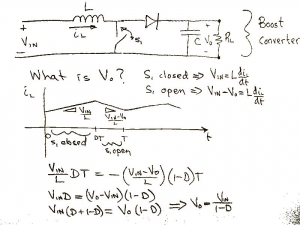 L
+ i_L + Boost
V_IN S₁ C V₀ R_L Converter
- -
What is V₀? S₁ closed ⇒ V_IN = L di_L/dt
S₁ open ⇒ V_IN - V₀ = L di_L/dt
i_L
V_IN/L (V_IN-V₀)/L
DT T t
S₁ closed S₁ open
V_IN/L DT = -(V_IN-V₀)/L (1-D)T
V_IN D = (V₀-V_IN)(1-D)
V_IN (D+1-D) = V₀ (1-D) ⇒ V₀ = V_IN/(1-D)